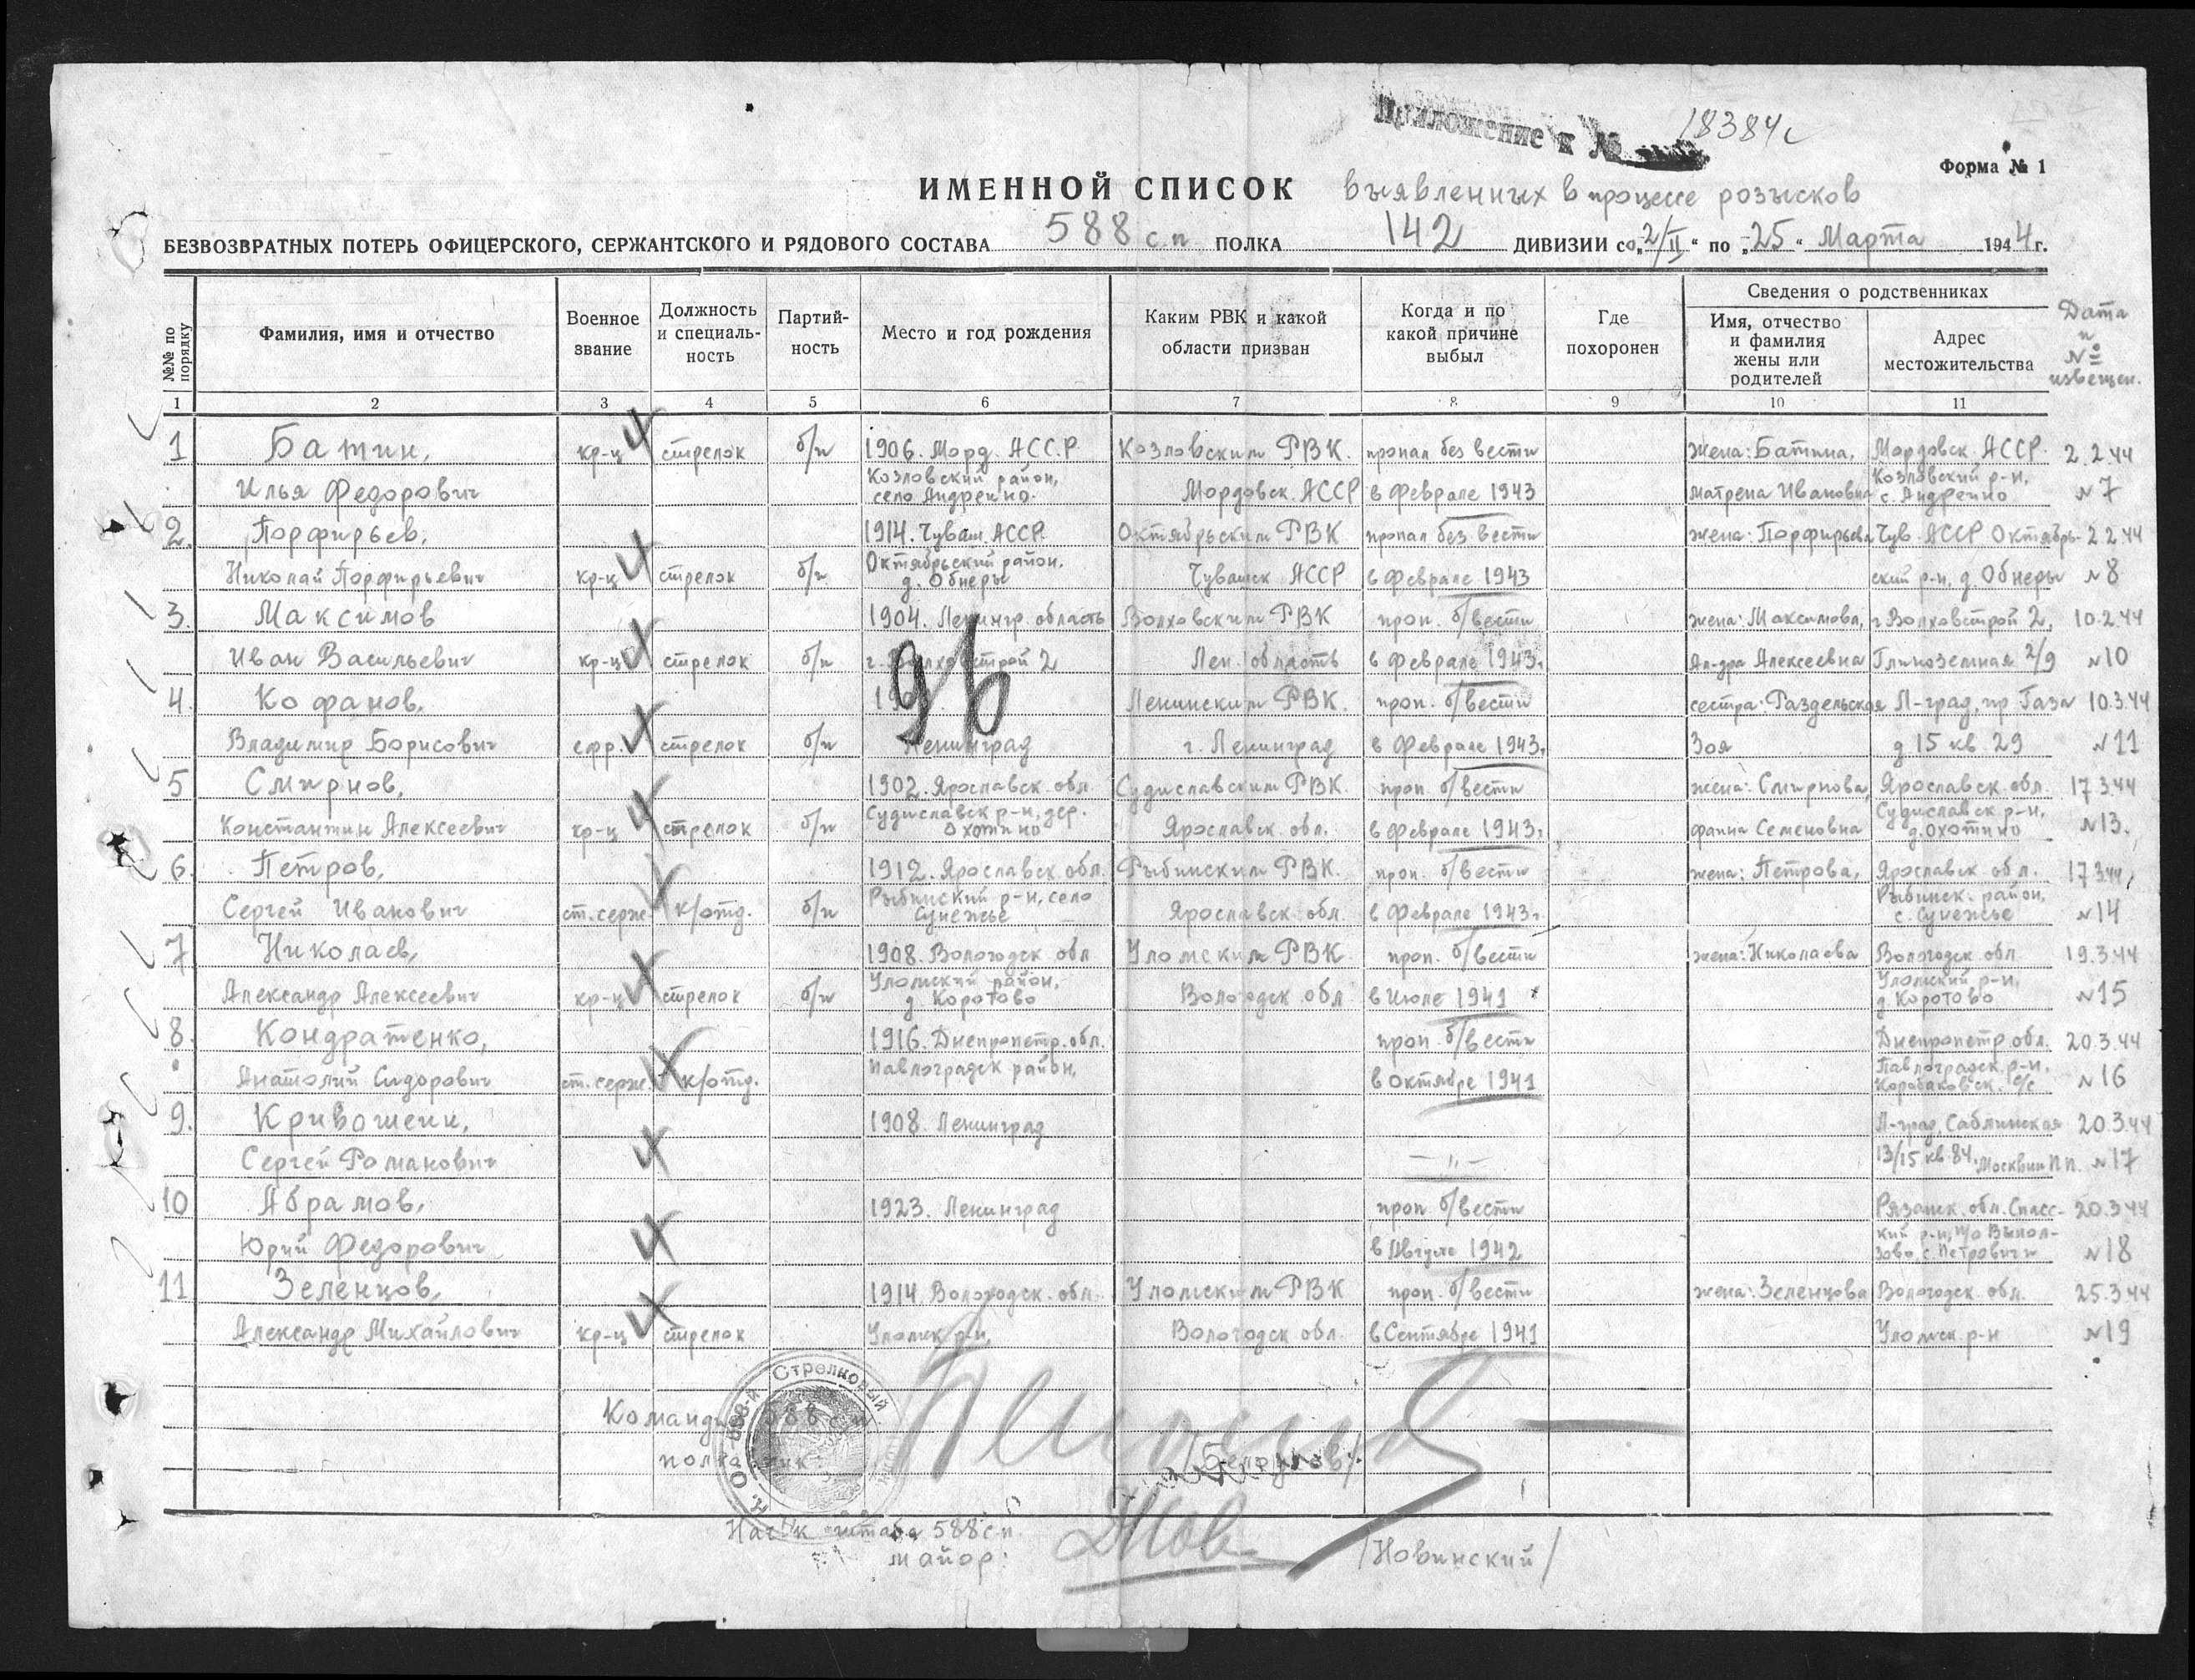 Приложение к № 18384с
Форма № 1
ИМЕННОЙ СПИСОК выявленных в процессе розысков
БЕЗВОЗВРАТНЫХ ПОТЕРЬ ОФИЦЕРСКОГО, СЕРЖАНТСКОГО И РЯДОВОГО СОСТАВА 588 с.п ПОЛКА 142 ДИВИЗИИ со „2/II“ по „25“ Марта 1944 г.
№№ по порядку
Фамилия, имя и отчество
Военное звание
Должность и специаль-ность
Партий-ность
Место и год рождения
Каким РВК и какой области призван
Когда и по какой причине выбыл
Где похоронен
Сведения о родственниках
Имя, отчество и фамилия жены или родителей
Адрес местожительства
Дата и № извещен.
1 2 3 4 5 6 7 8 9 10 11
1 Батин, кр-ц стрелок б/п 1906. Морд. АССР Козловским РВК. пропал без вести жена: Батина, Мордовск. АССР. 2.2.44
Илья Федорович Козловский район, село Андреино. Мордовск. АССР в Феврале 1943 Матрена Ивановна Козловский р-н, с. Андреино №7
2. Порфирьев, 1914. Чуваш. АССР. Октябрьским РВК пропал без вести жена: Порфирьева Чув. АССР Октябрь- 2.2.44
Николай Порфирьевич кр-ц стрелок б/п Октябрьский район, д. Обнеры Чувашск АССР в Феврале 1943 ский р-н, д. Обнеры №8
3. Максимов 1904. Ленингр. область Волховским РВК проп. б/вести жена: Максимова, г. Волховстрой 2, 10.2.44
Иван Васильевич кр-ц стрелок б/п г. Волховстрой 2 Лен. область в Феврале 1943г. Ал-дра Алексеевна Глиноземная 2/9 №10
96
4. Кофанов, Ленинским РВК. проп. б/вести сестра: Раздельская Л-град, пр Газа 10.3.44
Владимир Борисович ефр. стрелок б/п Ленинград г. Ленинград в Феврале 1943г. Зоя д 15 кв. 29 №11
5 Смирнов, 1902. Ярославск. обл. Судиславским РВК. проп. б/вести жена: Смирнова, Ярославск. обл. 17.3.44
Константин Алексеевич кр-ц стрелок б/п Судиславск р-н, дер. Охотино Ярославск. обл. в Феврале 1943г. Фаина Семеновна Судиславск р-н, д. Охотино №13.
6. Петров, 1912. Ярославск. обл. Рыбинским РВК. проп. б/вести жена: Петрова, Ярославск обл. 17.3.44
Сергей Иванович ст. серж. к/отд. б/п Рыбинский р-н, село Сунежье Ярославск. обл. в Феврале 1943г. Рыбинск. район, с. Сунежье №14
7 Николаев, 1908. Вологодск. обл Уломским РВК проп. б/вести жена: Николаева Вологодск. обл 19.3.44
Александр Алексеевич кр-ц стрелок б/п Уломский район, д. Коротово Вологодск. обл в Июле 1941 Уломский р-н, д. Коротово №15
8. Кондратенко, 1916. Днепропетр. обл. проп б/вести Днепропетр. обл. 20.3.44
Анатолий Сидорович ст. серж. к/отд. Павлоградск район, в Октябре 1941 Павлоградск. р-н, №16
9. Кривошеин, 1908. Ленинград Л-град, Саблинская 20.3.44
Сергей Романович — „ — 13/15 кв. 84, Москвин П.П. №17
10 Абрамов, 1923. Ленинград проп б/вести Рязанск. обл. Спасс- 20.3.44
Юрий Федорович в Августе 1942 кий р-н, п/о Выпол- зово, с. Петровичи №18
11 Зеленцов, 1914. Вологодск. обл. Уломским РВК проп. б/вести жена: Зеленцова Вологодск. обл. 25.3.44
Александр Михайлович кр-ц стрелок Уломск р-н, Вологодск обл. в Сентябре 1941 Уломск. р-н №19
Н. К. О. 588-й Стрелковый
Командир 588 сп
полковник
Нач-к штаба 588 сп.
майор: /Новинский/